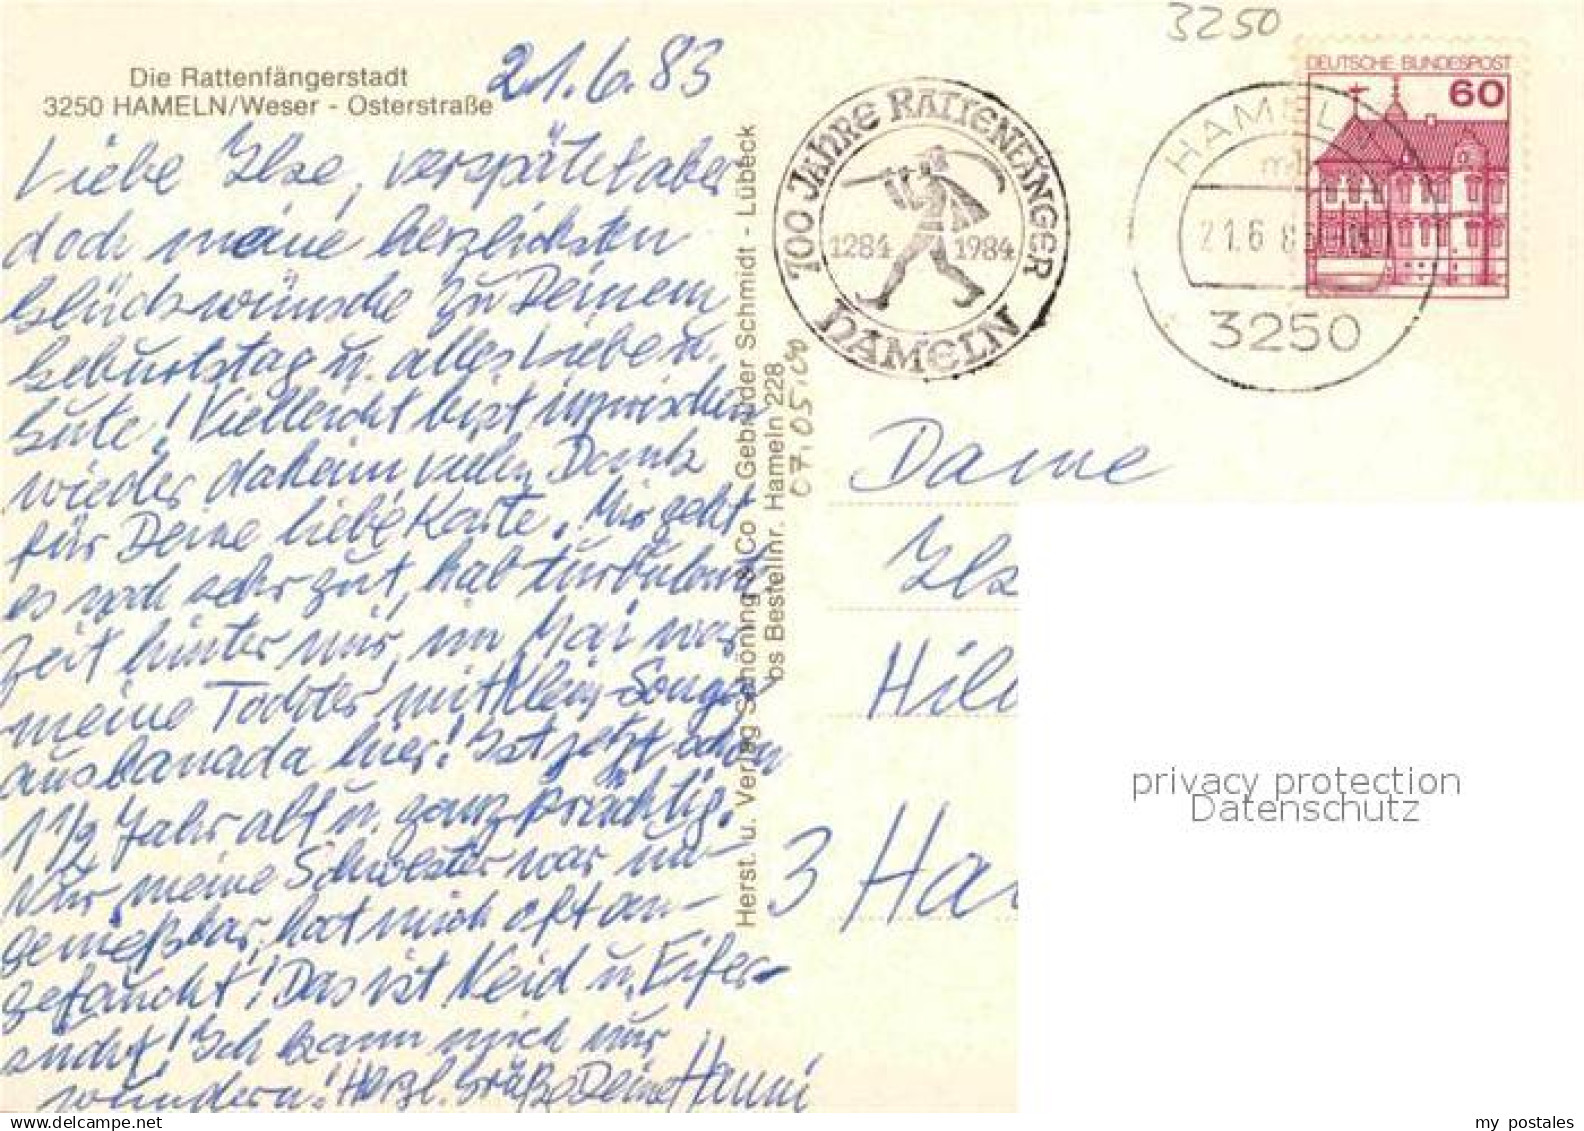 3250
Die Rattenfängerstadt
3250 HAMELN/Weser - Osterstraße
21.6.83
Liebe Ilse, verspätet aber
doch meine herzlichsten
Glückwünsche zu Deinem
Geburtstag u. alles Liebe u.
Gute! Vielleicht bist inzwischen
wieder daheim vielen Dank
für Deine liebe Karte. Mir geht
es noch sehr gut, hab turbulente
Zeit hinter mir, im Mai war
meine Tochter mit klein
aus Kanada hier! Ist jetzt schon
1 1/2 Jahr alt u. ganz prächtig.
Nur meine Schwester war un-
genießbar, hat mich oft an-
gefaucht! Das ist Neid u. Eifer-
sucht! Ich kann mich nur
wundern! Herzl. Grüße Deine Hanni
Herst. u. Verlag Schöning & Co Gebrüder Schmidt - Lübeck
bs Bestellnr. Hameln 228
07.05.00
700 JAHRE RATTENFÄNGER
1284 1984
HAMELN
HAMELN
mb
21.6.8
3250
DEUTSCHE BUNDESPOST
60
Dame
Ils
Hil
3 Ha
privacy protection
Datenschutz
my postales